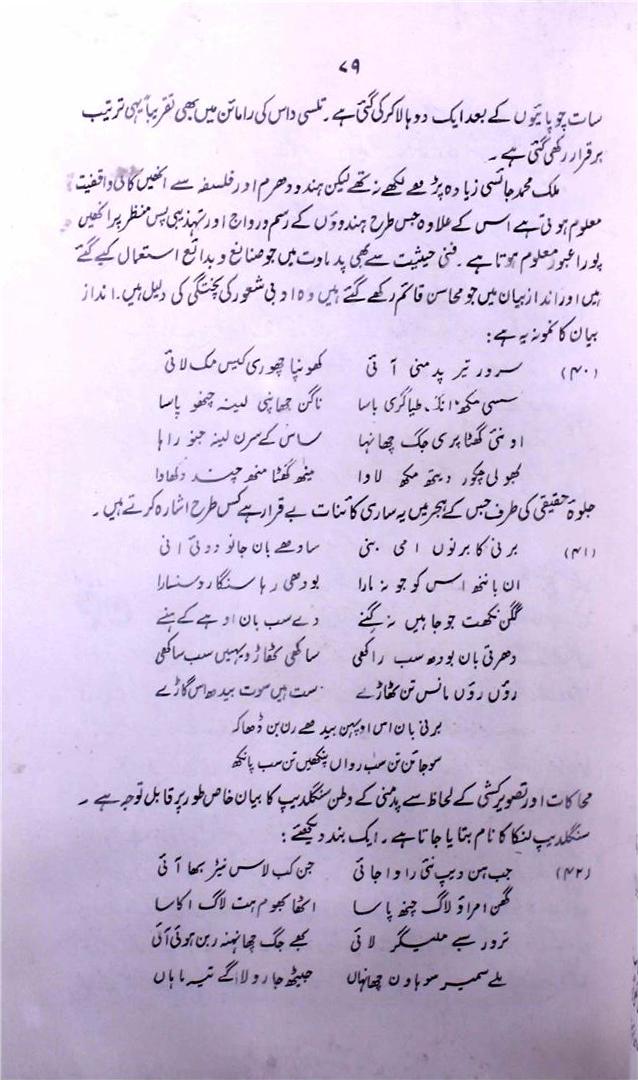 ۷۹
سات چوپائیوں کے بعد ایک دوہا لا کر کی گئی ہے۔ تلسی داس کی رامائن میں بھی تقریباً یہی ترتیب
برقرار رکھی گئی ہے۔
ملک محمد جائسی زیادہ پڑھے لکھے نہ تھے لیکن ہندو دھرم اور فلسفہ سے انھیں کافی واقفیت
معلوم ہوتی ہے اس کے علاوہ جس طرح ہندوؤں کے رسم و رواج اور تہذیبی پس منظر پر انھیں
پورا عبور معلوم ہوتا ہے۔ فنی حیثیت سے بھی پدماوت میں جو صنائع و بدائع استعمال کیے گئے
ہیں اور انداز بیان میں جو محاسن قائم رکھے گئے ہیں وہ ادبی شعور کی پختگی کی دلیل ہیں۔ انداز
بیان کا نمونہ یہ ہے:
(۴۰) سرور تیر پدمنی آئی کھونپا چھوری کیس مک لائی
سسی مکھ انگ ملیا گری باسا ناگن جھانپی لینہ چنھو پاسا
اونئی گھٹا پری جگ چھانہا ساس کے سرن لینہ جنو راہا
بھولی چکور دیتھ مکھ لاوا میٹھ گھٹا منھ چند دکھاوا
جلوۂ حقیقی کی طرف جس کے ہجر میں یہ ساری کائنات بے قرار ہے کس طرح اشارہ کرتے ہیں۔
(۴۱) برنی کا برنوں امی بنی سادھے بان جانو دوئی انی
ان بانتھ اس کو جو نہ مارا بودھی رہا سنگا روسنسارا
گگن نکھت جو جاہیں نہ گنے دے سب بان اوہے کے ہنے
دھرتی بان بودھ سب راکھی ساکھی کٹھاڑ وہیں سب ساکھی
روؤں روؤں مانس تن ٹھاڑے ست ہیں سوت بیدھ اس گاڑے
برنی بان اس اوپہن بیدھے رن بن ڈھاکہ
سوجا تن تن سب رواں پنکھیں تن سب پانکھ
محاکات اور تصویر کشی کے لحاظ سے پدمنی کے وطن سنگلدیپ کا بیان خاص طور پر قابل توجہ ہے۔
سنگلدیپ لنکا کا نام بتایا جاتا ہے۔ ایک بند دیکھئے:
(۴۲) جب ہن دیپ نئی راوا جائی جن کب لاس نیڑ بھا آئی
گھن امراؤ لاگ چتھ پاسا اٹھا بھوم ہت لاگ اکاسا
ترور سبے ملیگر لائی بھیے جگ چھانہنہ رین ہوئی آئی
ملے سمیر سوہاون چھانہاں جیٹھ جارولاگے تیہ ماہاں